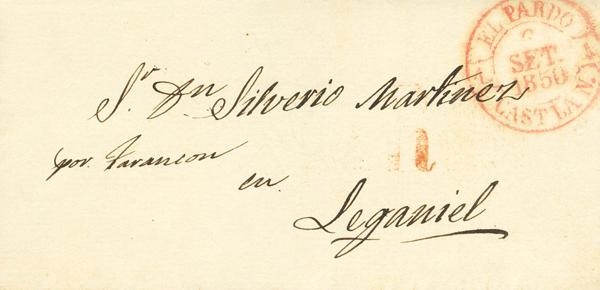 EL PARDO
6
SET.
1850
CAST LA N.
Sr Dn Silverio Martinez
por Tarancon
en
Leganiel
R